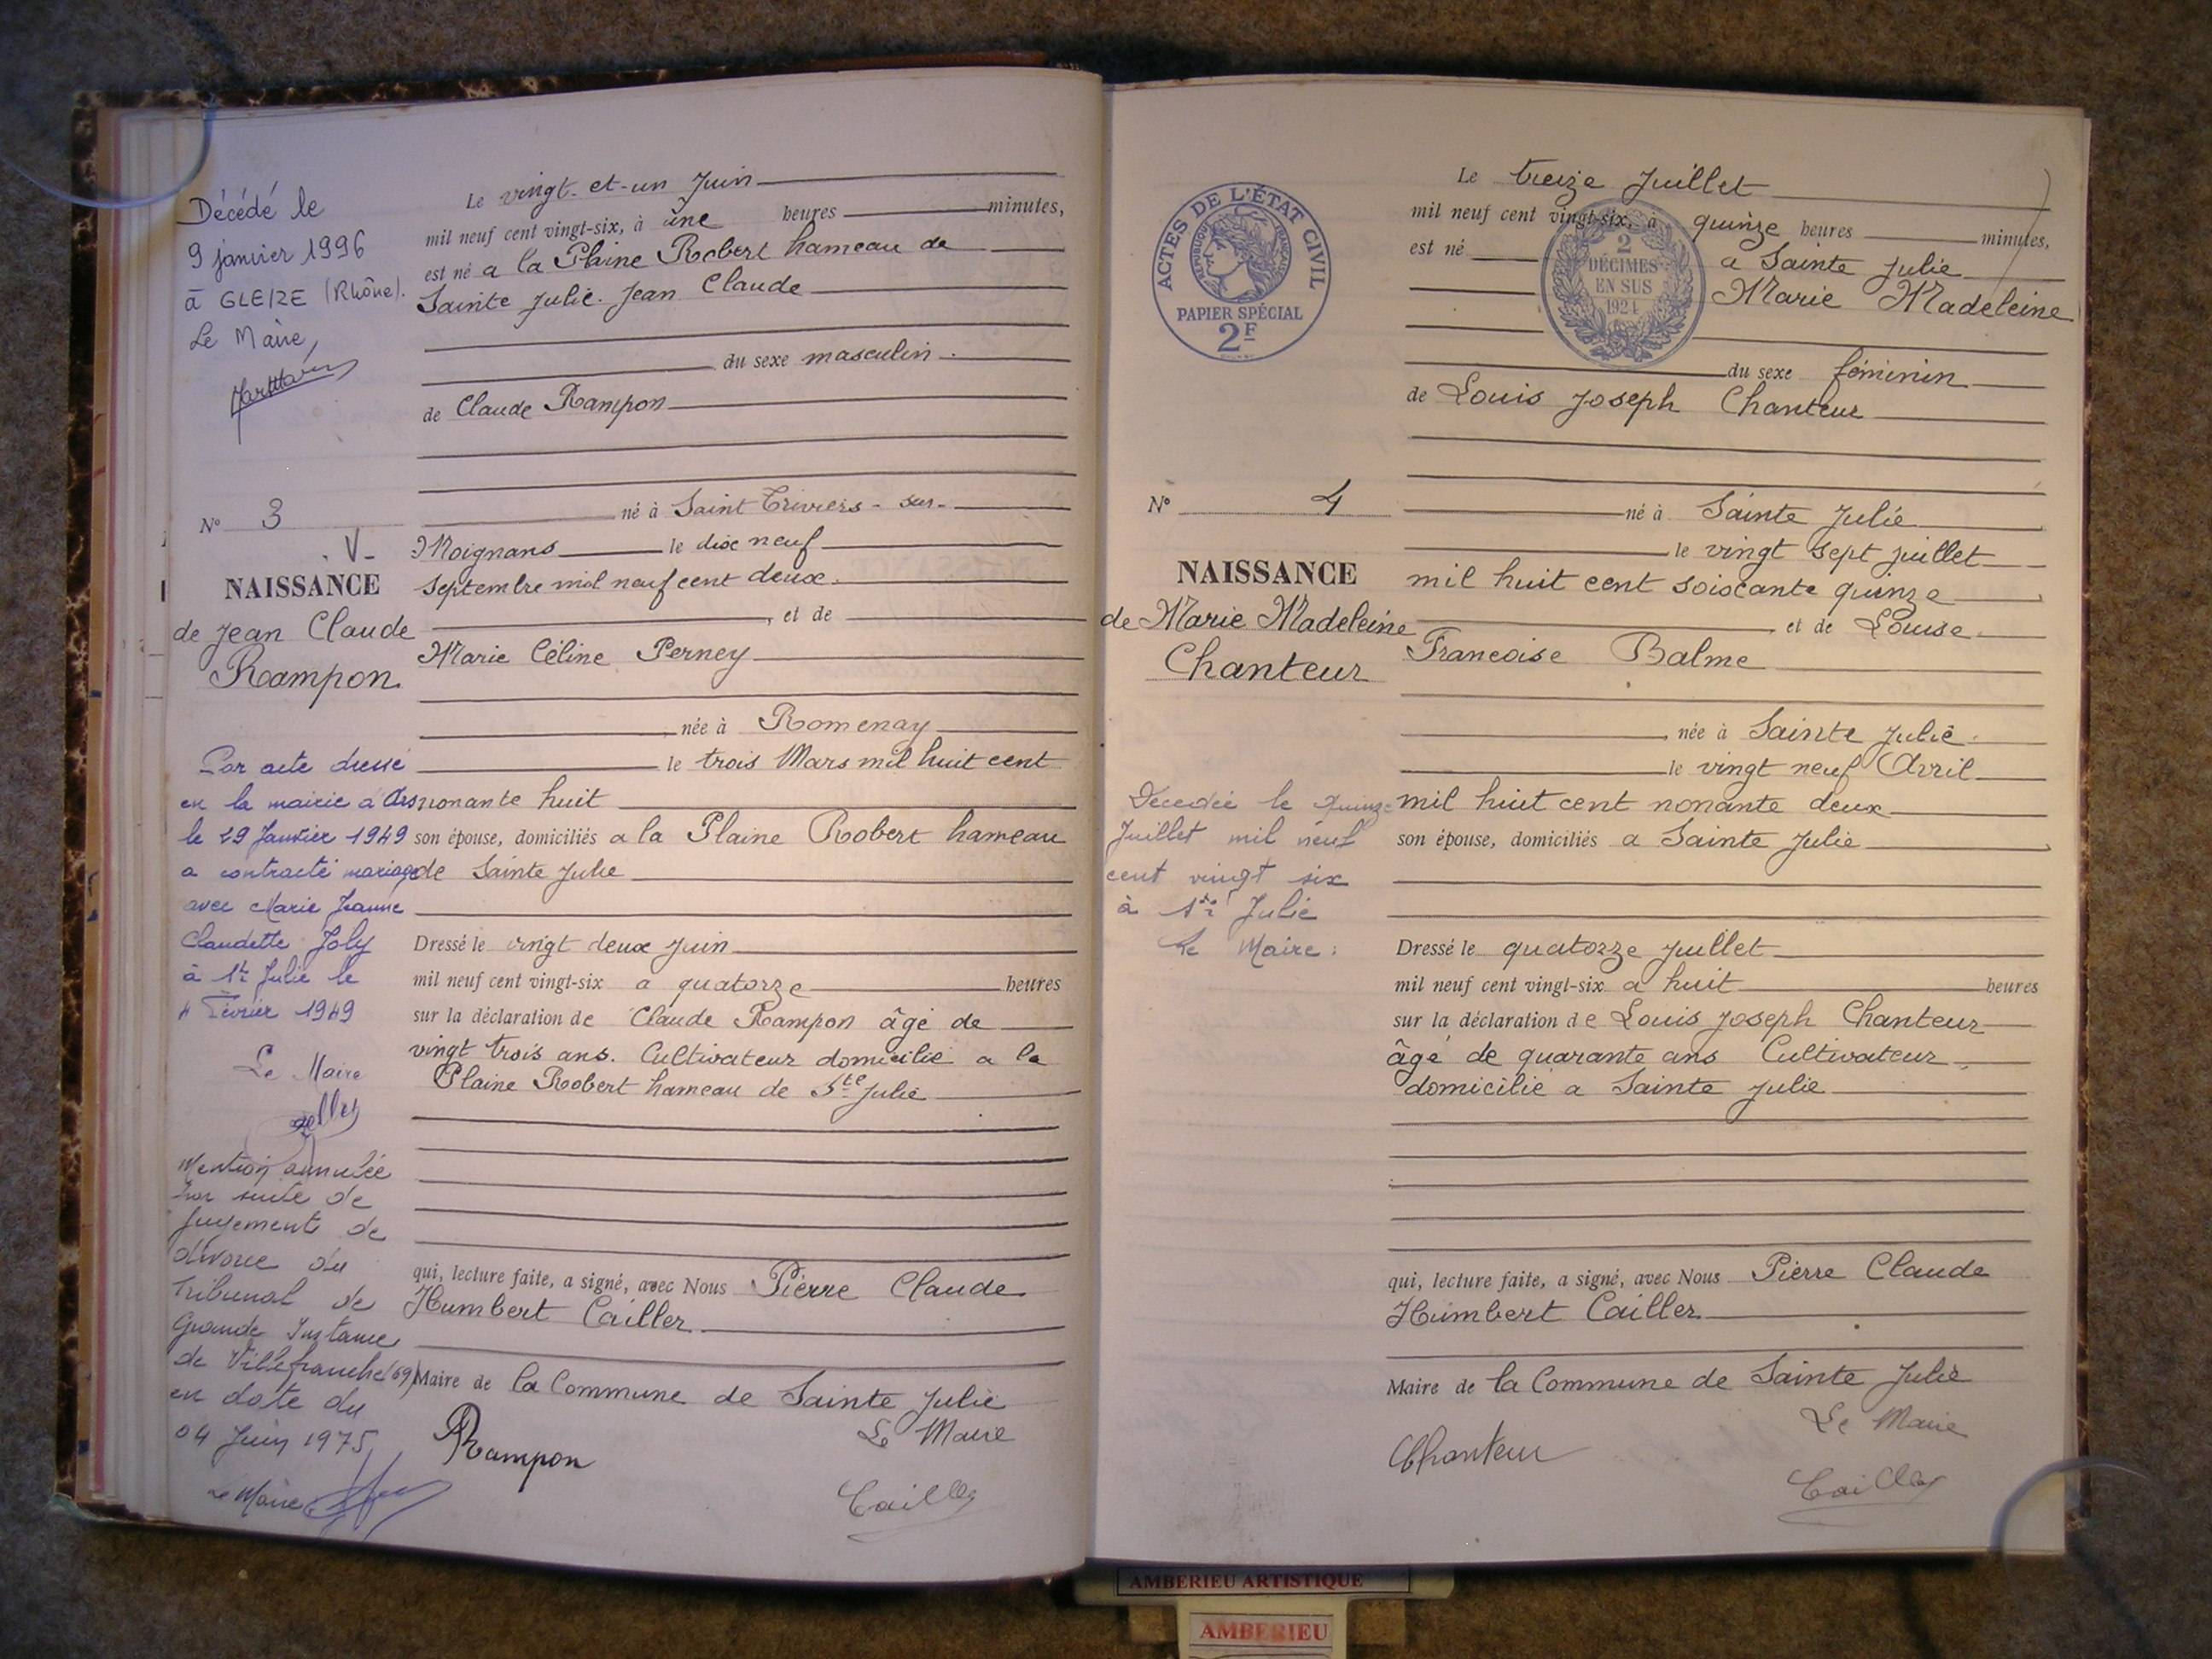 Décédé le
9 janvier 1996
à GLEIZE (Rhône).
Le Maire,
N° 3
- V -
NAISSANCE
de Jean Claude
Rampon
Par acte dressé
en la mairie d'Ars
le 29 Janvier 1949
a contracté mariage
avec Marie Jeanne
Claudette Joly
à Ste Julie le
4 Février 1949
Le Maire
Mention annulée
par suite de
jugement de
divorce du
Tribunal de
Grande Instance
de Villefranche (69)
en date du
04 Juin 1975
Le Maire
Le vingt-et-un Juin
mil neuf cent vingt-six, à une heures minutes,
est né a la Plaine Robert hameau de
Sainte Julie. Jean Claude
du sexe masculin.
de Claude Rampon
né à Saint Triviers-sur-
Moignans le dix neuf
septembre mil neuf cent deux.
, et de
Marie Céline Perney
, née à Romenay
le trois Mars mil huit cent
nonante huit
son épouse, domiciliés a la Plaine Robert hameau
de Sainte Julie
Dressé le vingt deux juin
mil neuf cent vingt-six a quatorze heures
sur la déclaration de Claude Rampon âgé de
vingt trois ans. Cultivateur domicilié a la
Plaine Robert hameau de Ste Julie
qui, lecture faite, a signé, avec Nous Pierre Claude
Humbert Cailler
Maire de la Commune de Sainte Julie
Le Maire
Rampon
Cailler
ACTES DE L'ÉTAT CIVIL
RÉPUBLIQUE FRANÇAISE
PAPIER SPÉCIAL
2F
N° 4
NAISSANCE
de Marie Madeleine
Chanteur
Décédée le quinze
Juillet mil neuf
cent vingt six
à Ste Julie
Le Maire :
Le treize Juillet
mil neuf cent vingt-six, à quinze heures minutes,
est né a Sainte Julie
2
DÉCIMES
EN SUS
1924
Marie Madeleine
du sexe féminin
de Louis Joseph Chanteur
né à Sainte Julie
le vingt sept juillet
mil huit cent soixante quinze
, et de Louise
Francoise Balme
, née à Sainte Julie
le vingt neuf Avril
mil huit cent nonante deux
son épouse, domiciliés a Sainte Julie
Dressé le quatorze juillet
mil neuf cent vingt-six a huit heures
sur la déclaration de Louis Joseph Chanteur
âgé de quarante ans Cultivateur
domicilié a Sainte Julie
qui, lecture faite, a signé, avec Nous Pierre Claude
Humbert Cailler
Maire de la Commune de Sainte Julie
Le Maire
Chanteur
Cailler
AMBERIEU ARTISTIQUE
AMBERIEU